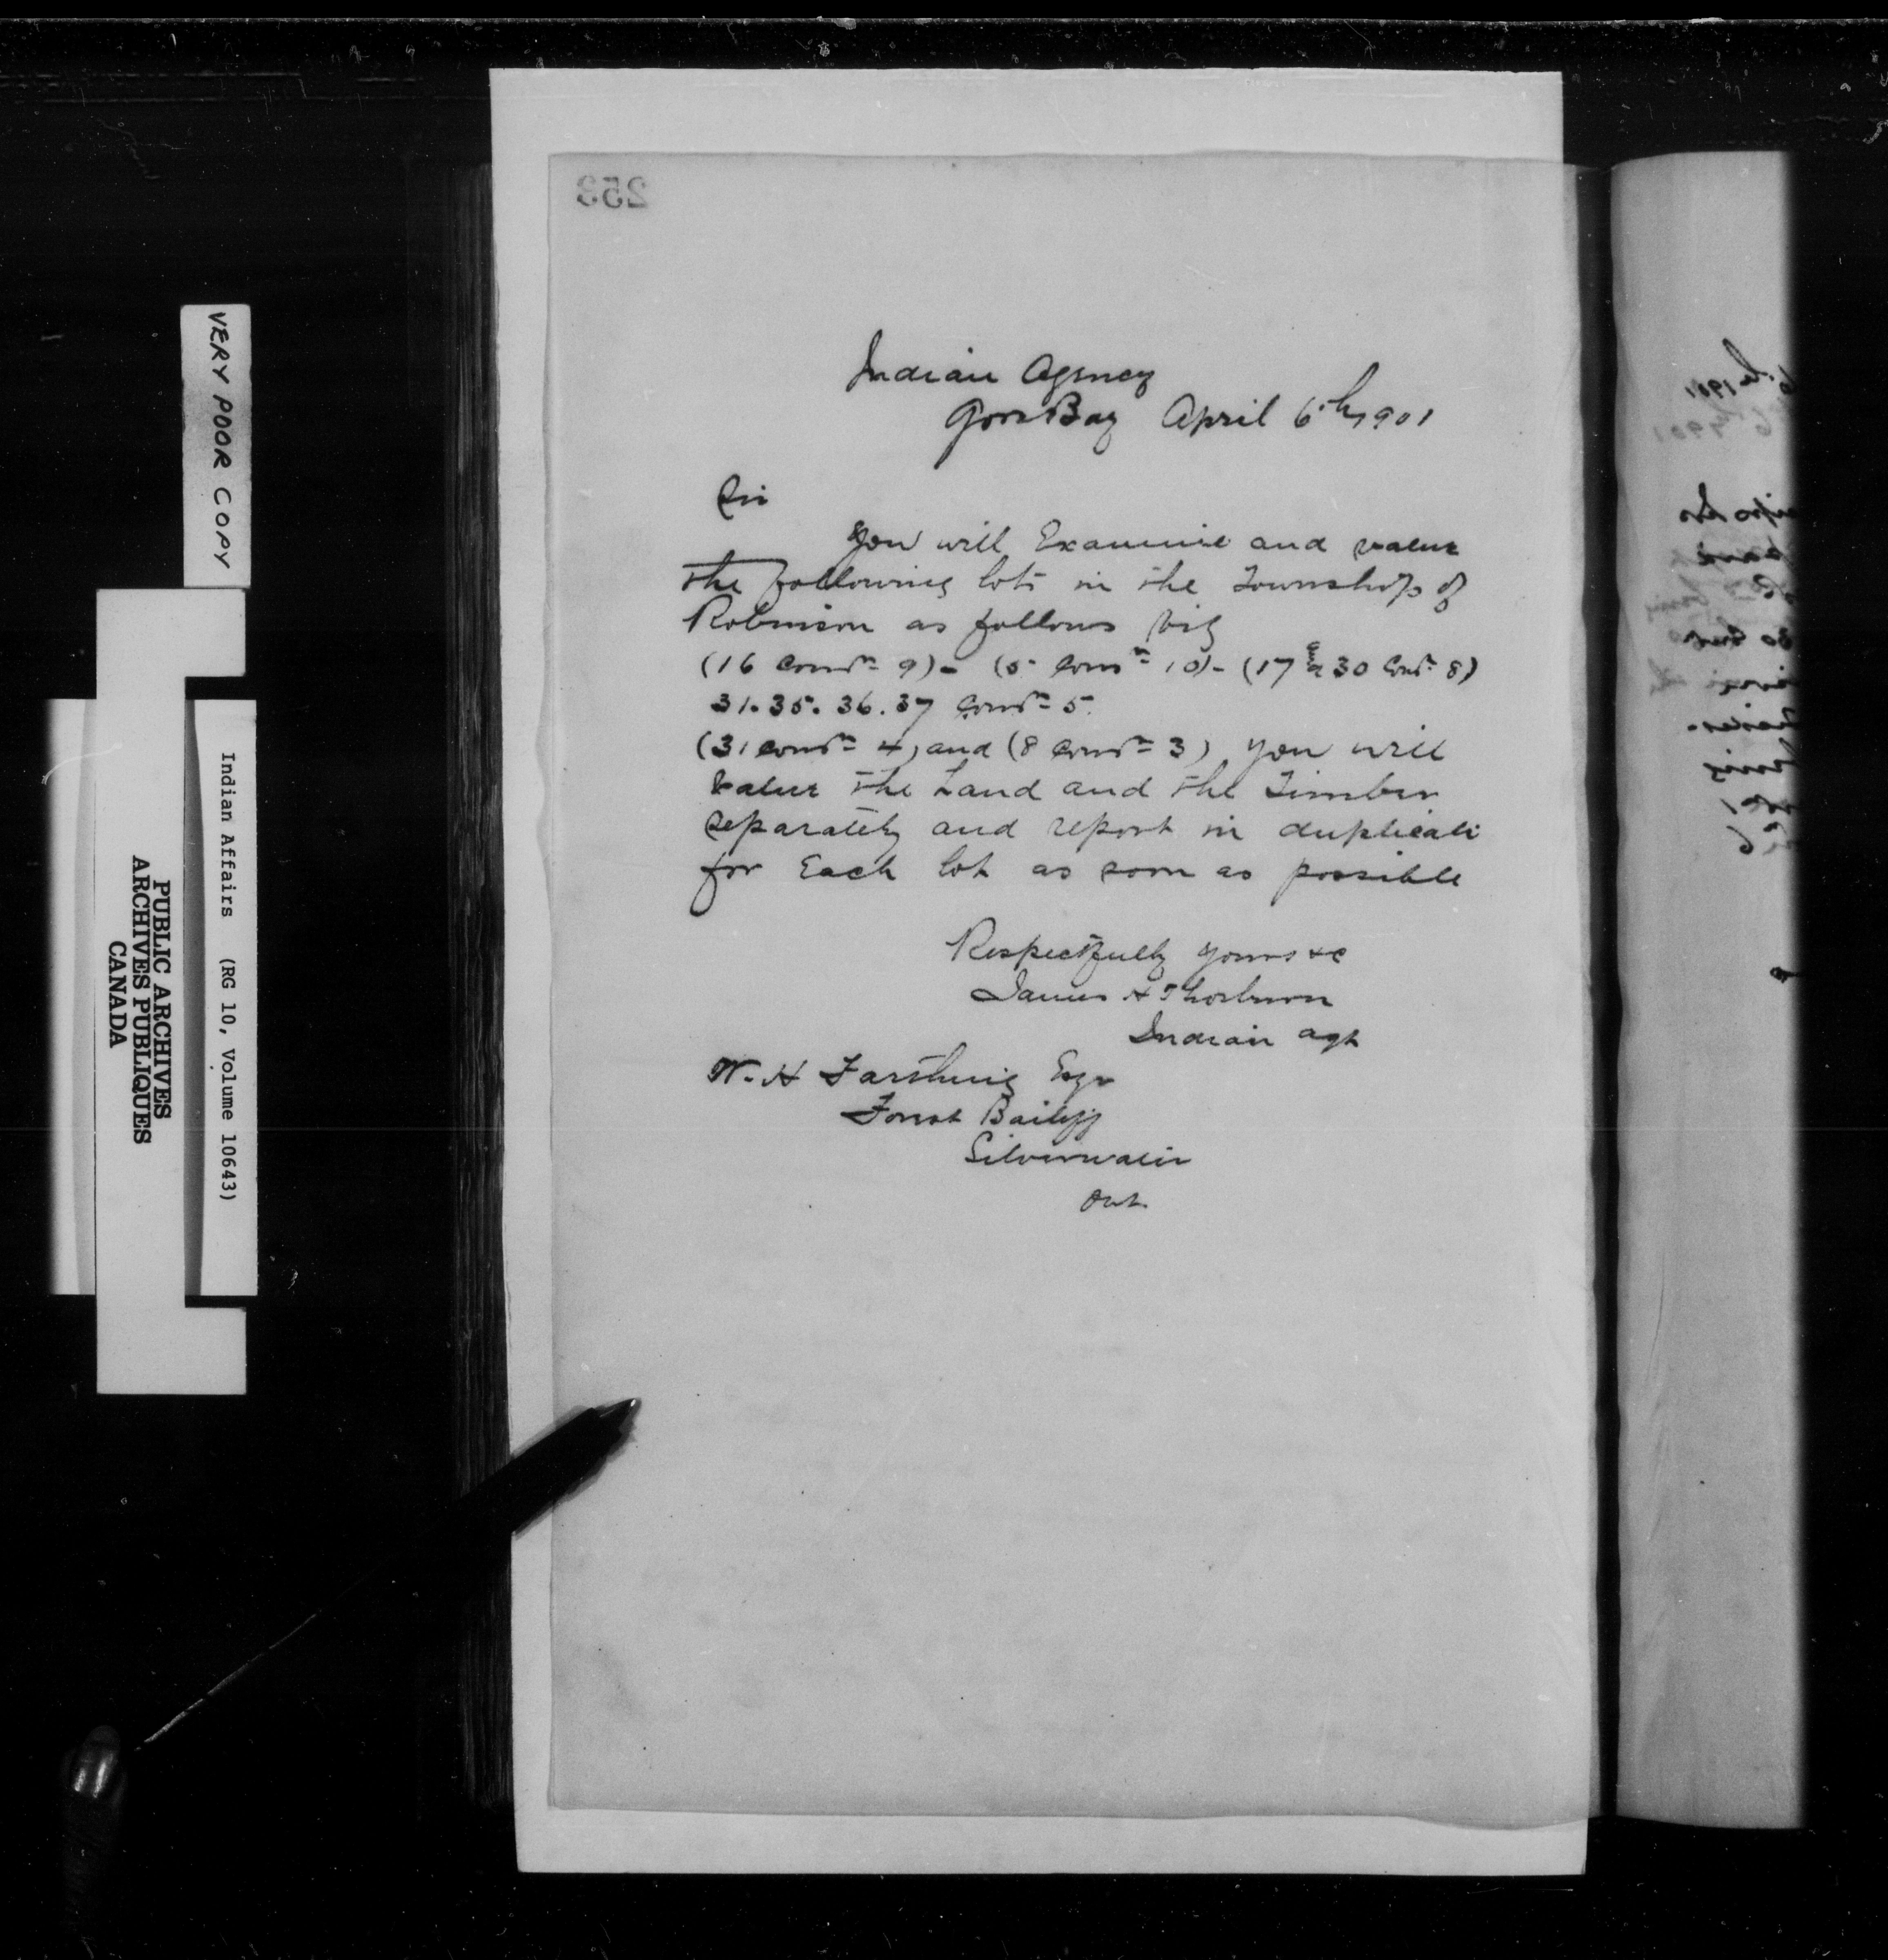 253
Indian Agency
Gore Bay April 6th 1901
Sir
You will Examine and value
the following lots in the Township of
Robinson as follows viz
(16 Consn 9) - (5 Consn 10) - (17 and 30 Cons 8)
31. 35. 36. 37 Consn 5.
(31 Consn 4) and (8 Consn 3) you will
value the Land and the Timber
separately and report in duplicate
for Each lot as soon as possible
Respectfully yours &c
James H Thorburn
Indian agt
W. H Esqr
Forest Bailiff
Silverwater
Ont.
VERY POOR COPY
Indian Affairs (RG 10, Volume 10643)
PUBLIC ARCHIVES
ARCHIVES PUBLIQUES
CANADA